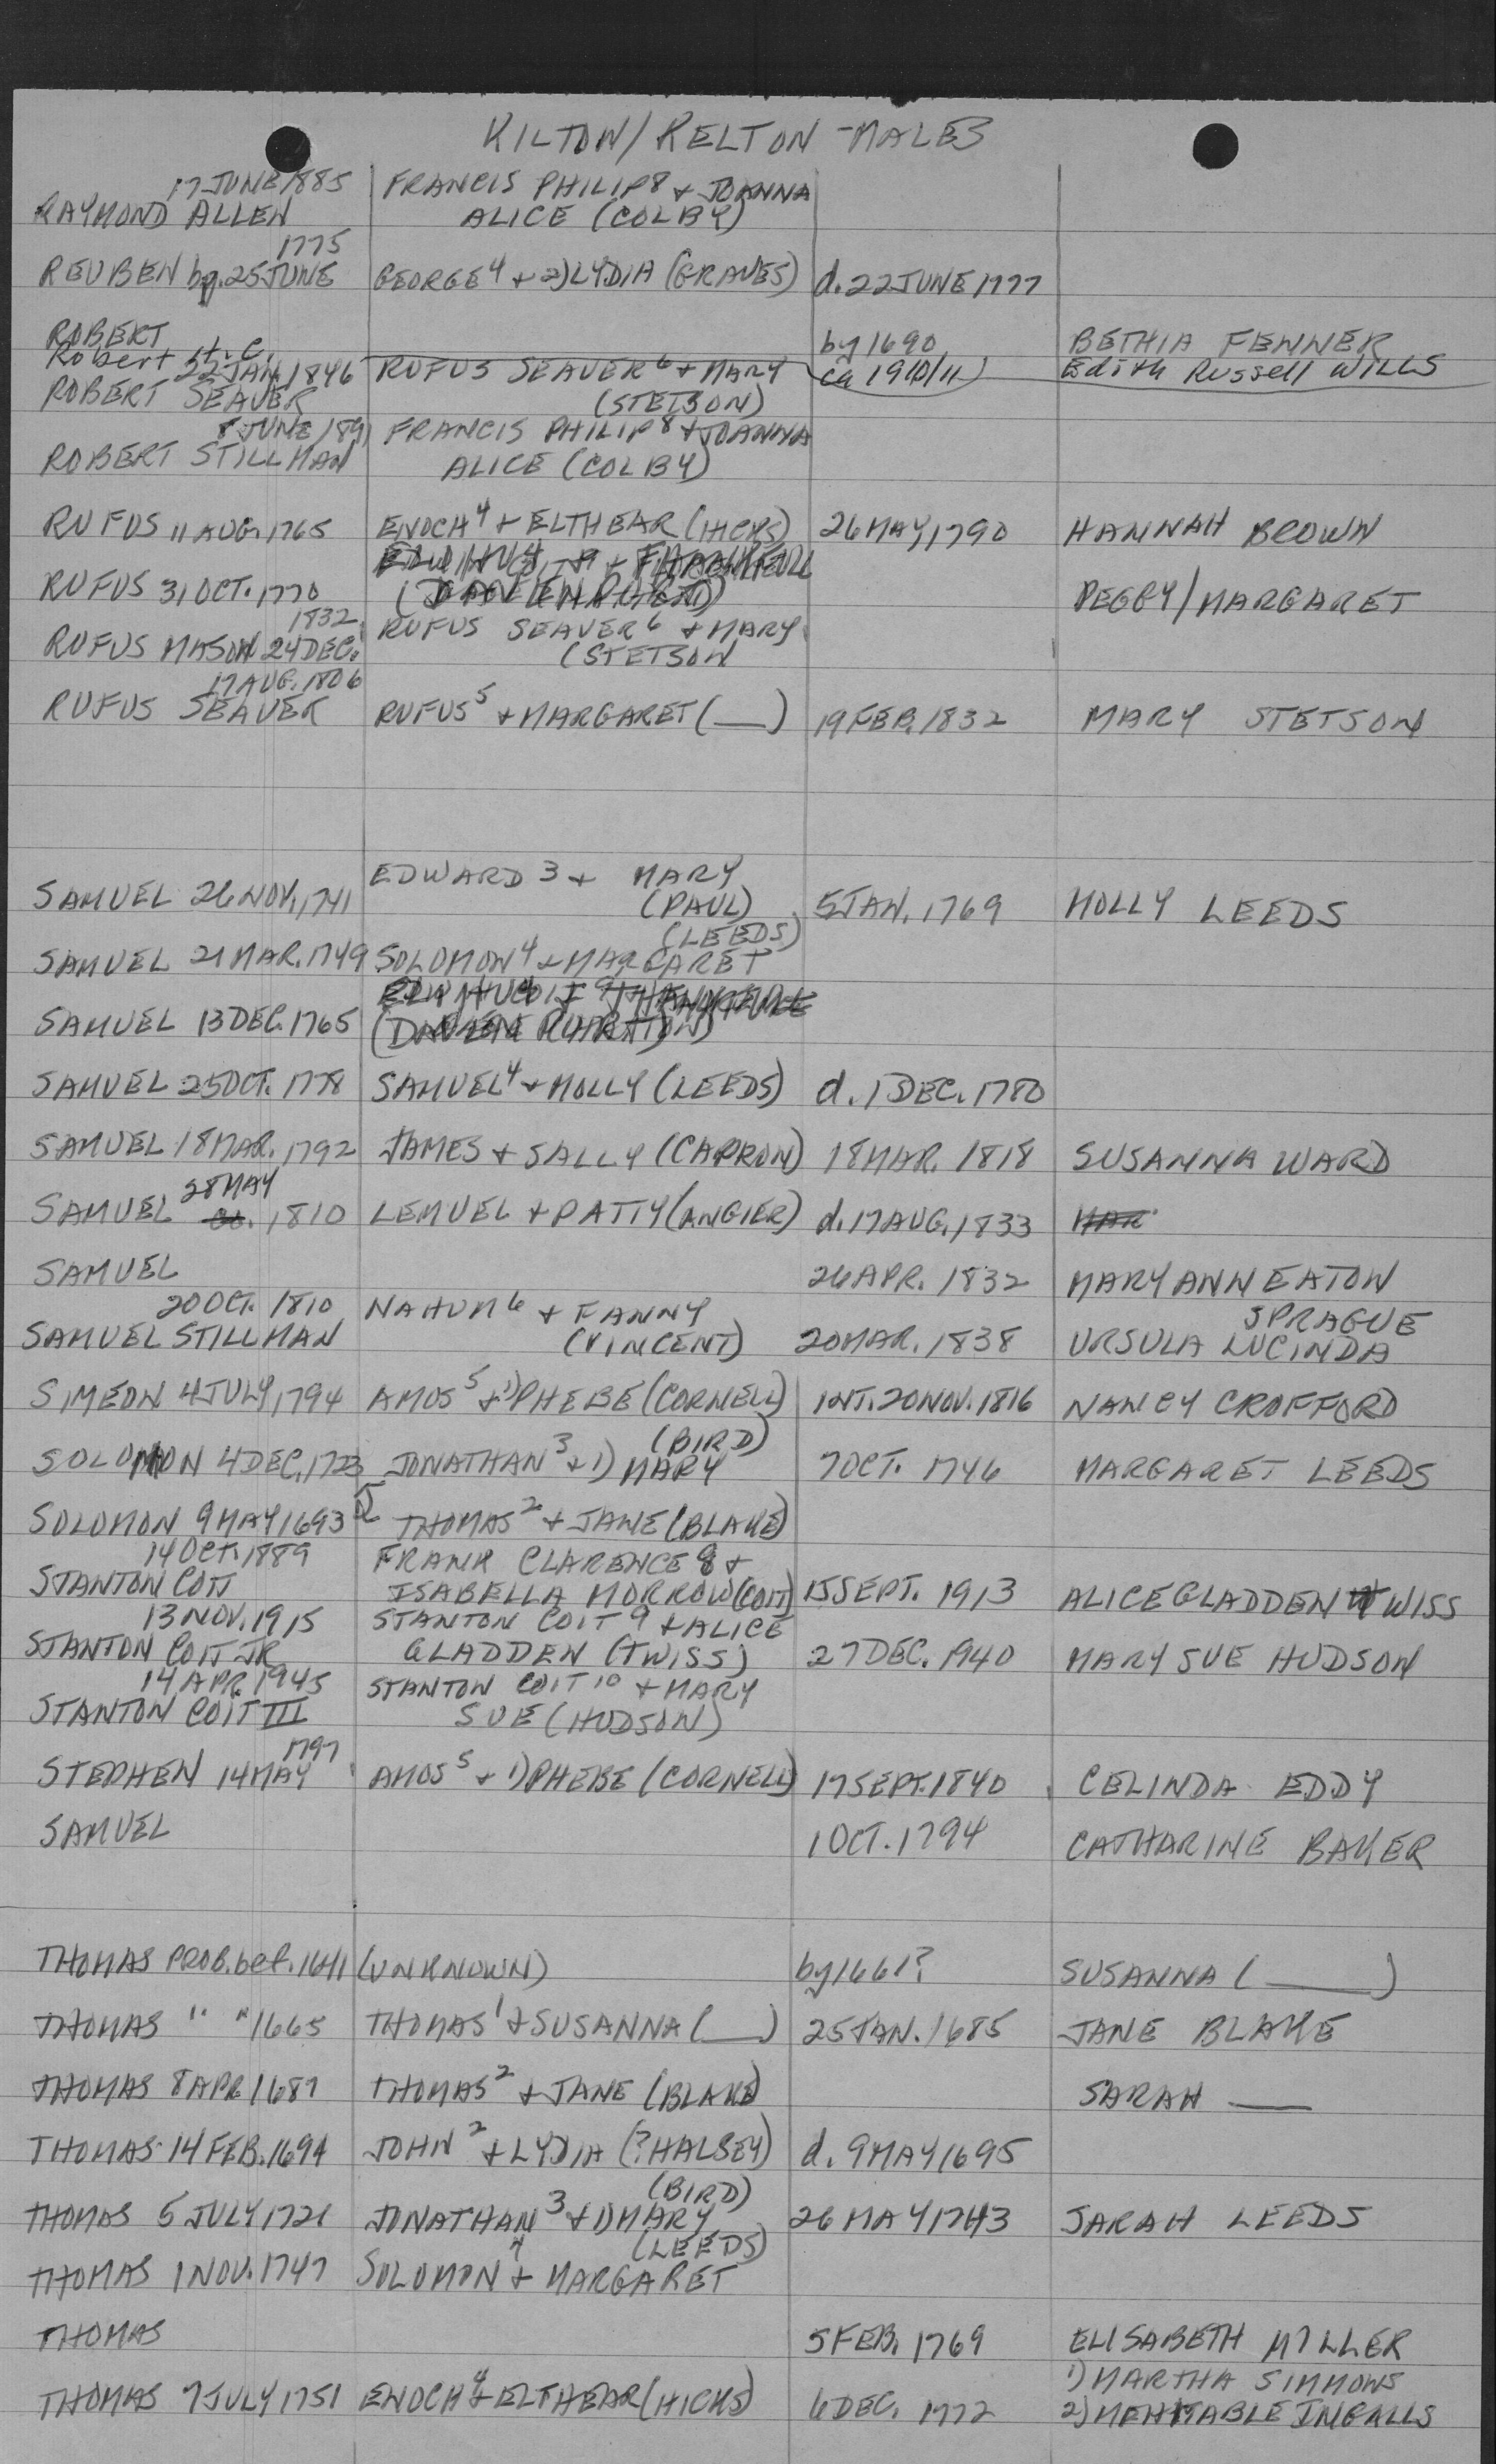 KILTON/KELTON - MALES
17 JUNE 1885 FRANCIS PHILIP 8 + JOANNA
RAYMOND ALLEN ALICE (COLBY)
1775
REUBEN bp. 25 JUNE GEORGE 4 + 2) LYDIA (GRAVES) d. 22 JUNE 1777
ROBERT by 1690 BETHIA FENNER
Robert H. C. ca 1910/11 Edith Russell WILLS
22 JAN. 1846 RUFUS SEAVER 6 + MARY
ROBERT SEAVER (STETSON)
8 JUNE 1891 FRANCIS PHILIP 8 + JOANNA
ROBERT STILLMAN ALICE (COLBY)
RUFUS 11 AUG. 1765 ENOCH 4 + ELTHEAR (HICKS) 26 MAY, 1790 HANNAH BROWN
RUFUS 31 OCT. 1770 PEGGY/MARGARET
1832 RUFUS SEAVER 6 + MARY
RUFUS MASON 24 DEC. (STETSON
17 AUG. 1806
RUFUS SEAVER RUFUS 5 + MARGARET (___) 19 FEB. 1832 MARY STETSON
EDWARD 3 + MARY
SAMUEL 26 NOV. 1741 (PAUL) 5 JAN. 1769 MOLLY LEEDS
(LEEDS)
SAMUEL 21 MAR. 1749 SOLOMON 4 + MARGARET
SAMUEL 13 DEC. 1765
SAMUEL 25 OCT. 1778 SAMUEL 4 + MOLLY (LEEDS) d. 1 DEC. 1780
SAMUEL 18 MAR. 1792 JAMES + SALLY (CAPRON) 18 MAR. 1818 SUSANNA WARD
28 MAY
SAMUEL ca. 1810 LEMUEL + PATTY (ANGIER) d. 17 AUG. 1833 MAR
SAMUEL 26 APR. 1832 MARY ANN EATON
20 OCT. 1810 NAHUM 6 + FANNY SPRAGUE
SAMUEL STILLMAN (VINCENT) 20 MAR. 1838 URSULA LUCINDA
SIMEON 4 JULY, 1794 AMOS 5 + 1) PHEBE (CORNELL) INT. 20 NOV. 1816 NANCY CROFFORD
(BIRD)
SOLOMON 4 DEC. 1723 JONATHAN 3 + 1) MARY 7 OCT. 1746 MARGARET LEEDS
SOLOMON 9 MAY 1693 THOMAS 2 + JANE (BLAKE)
14 OCT. 1889 FRANK CLARENCE 8 +
STANTON COIT ISABELLA MORROW (COIT) 15 SEPT. 1913 ALICE GLADDEN TWISS
13 NOV. 1915 STANTON COIT 9 + ALICE
STANTON COIT JR GLADDEN (TWISS) 27 DEC. 1940 MARY SUE HUDSON
14 APR. 1945 STANTON COIT 10 + MARY
STANTON COIT III SUE (HUDSON)
1797
STEPHEN 14 MAY AMOS 5 + 1) PHEBE (CORNELL) 17 SEPT. 1840 CELINDA EDDY
SAMUEL 1 OCT. 1794 CATHARINE BAKER
THOMAS PROB. bef. 1641 (UNKNOWN) by 1661? SUSANNA (___)
THOMAS " " 1665 THOMAS 1 + SUSANNA (___) 25 JAN. 1685 JANE BLAKE
THOMAS 8 APR 1687 THOMAS 2 + JANE (BLAKE) SARAH ___
THOMAS 14 FEB. 1694 JOHN 2 + LYDIA (?HALSEY) d. 9 MAY 1695
(BIRD)
THOMAS 5 JULY 1721 JONATHAN 3 + 1) MARY 26 MAY 1743 SARAH LEEDS
(LEEDS)
THOMAS 1 NOV. 1747 SOLOMON 4 + MARGARET
THOMAS 5 FEB. 1769 ELISABETH MILLER
1) MARTHA SIMMONS
THOMAS 7 JULY 1751 ENOCH 4 + ELTHEAR (HICKS) 6 DEC. 1772 2) MEHITABLE INGALLS